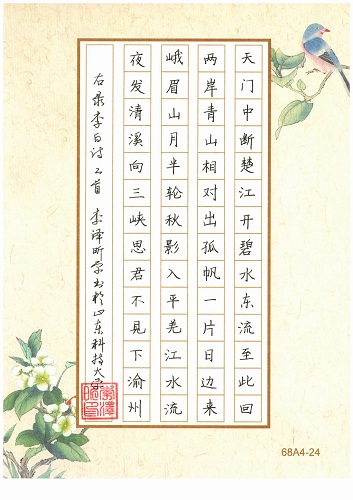 天门中断楚江开碧水东流至此回
两岸青山相对出孤帆一片日边来
峨眉山月半轮秋影入平羌江水流
夜发清溪向三峡思君不見下渝州
右录李白诗二首 李泽昕学书於山东科技大学
68A4-24